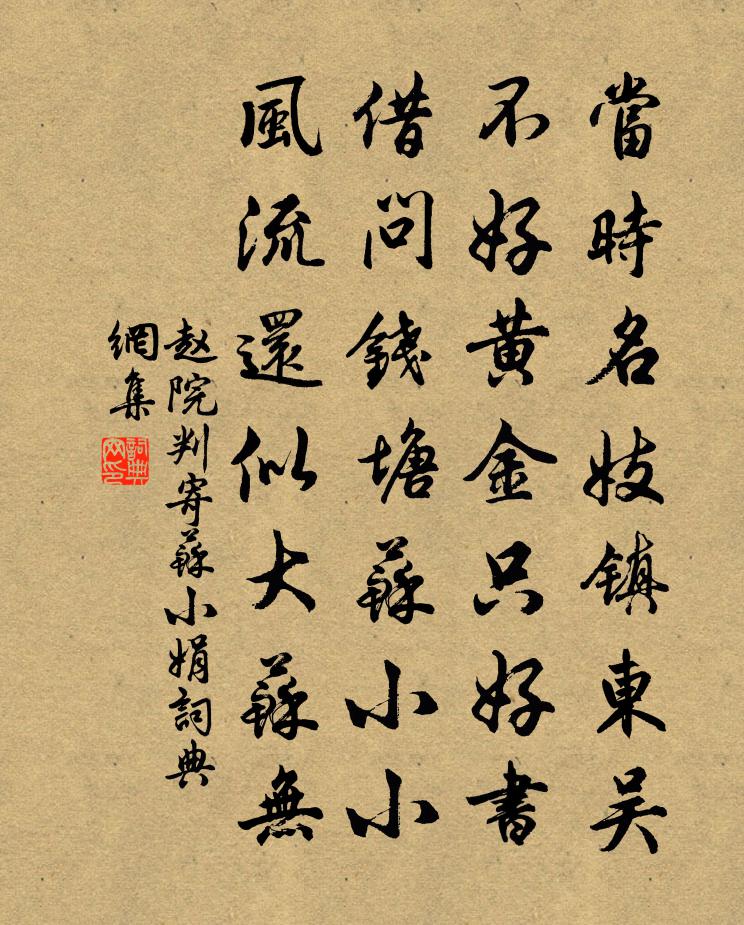 當時名妓鎮東吴
不好黄金只好書
借問錢塘蘇小小
風流還似大蘇無
赵院判寄蘇小娟詞典
網集
詞典
网印